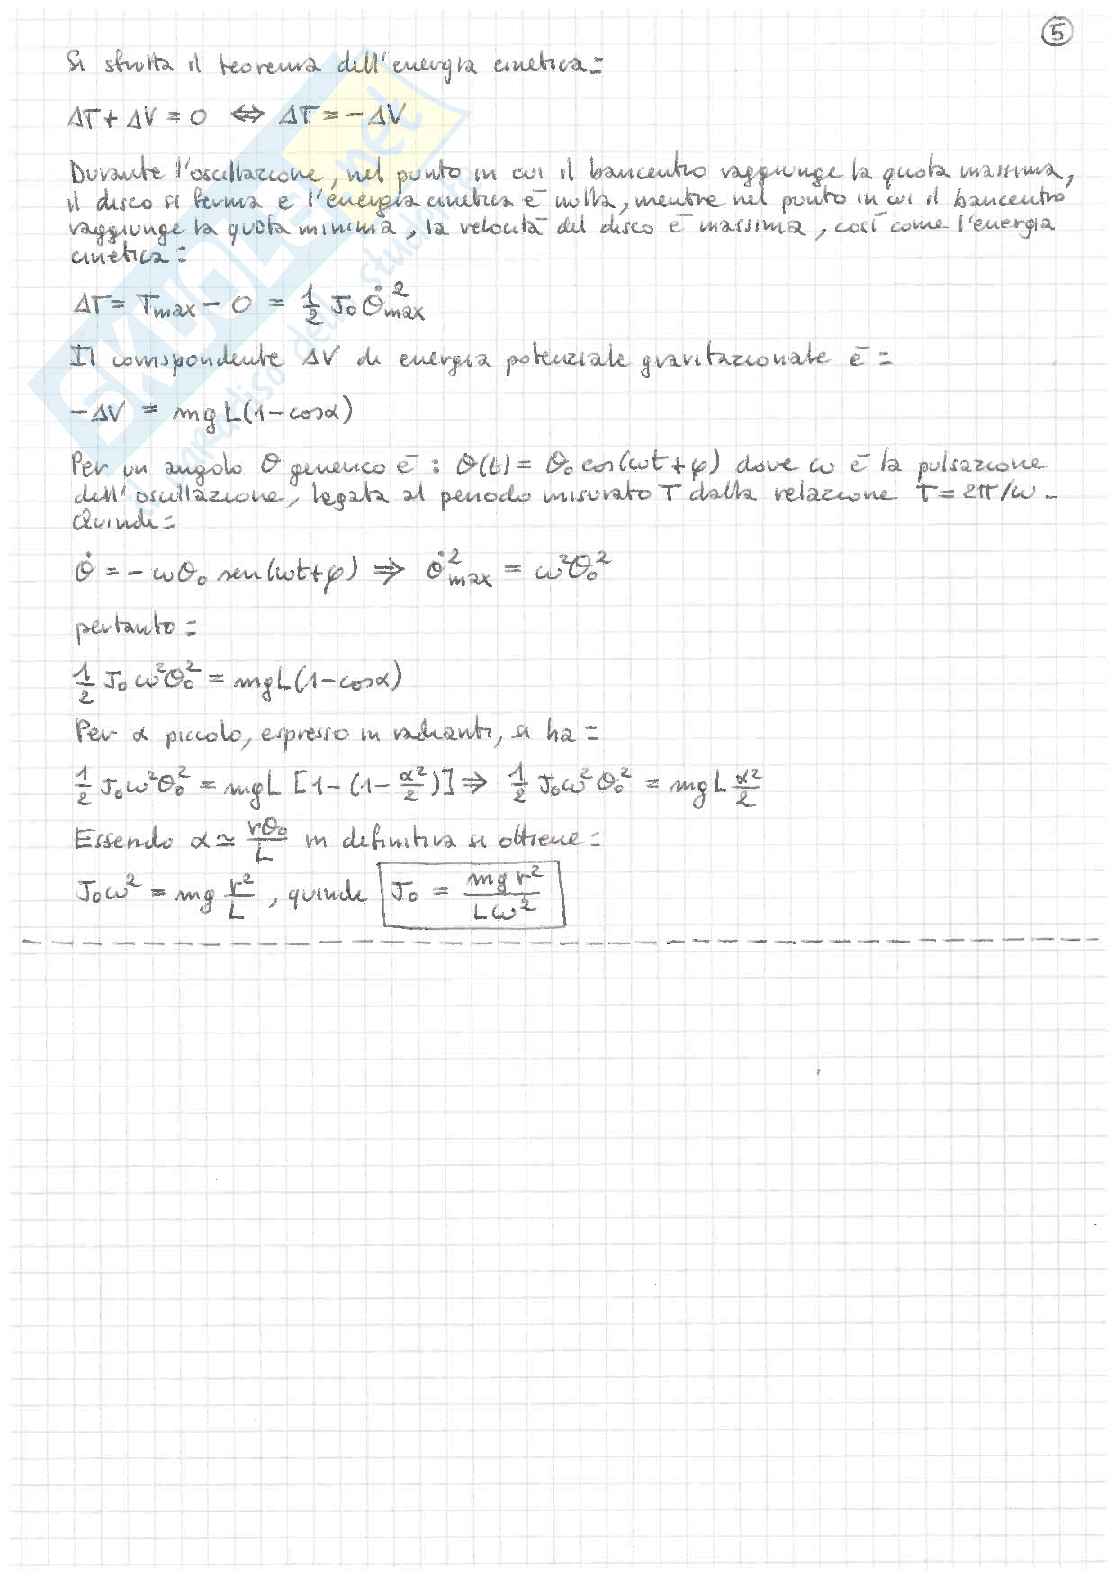 5
Si sfrutta il teorema dell'energia cinetica:
ΔT + ΔV = 0 ⇔ ΔT = -ΔV
Durante l'oscillazione, nel punto in cui il baricentro raggiunge la quota massima,
il disco si ferma e l'energia cinetica è nulla, mentre nel punto in cui il baricentro
raggiunge la quota minima, la velocità del disco è massima, così come l'energia
cinetica:
ΔT = Tmax - 0 = 1/2 J₀ θ̇²max
Il corrispondente ΔV di energia potenziale gravitazionale è:
-ΔV = mgL(1-cosα)
Per un angolo θ generico è: θ(t) = θ₀ cos(ωt+φ) dove ω è la pulsazione
dell'oscillazione, legata al periodo misurato T dalla relazione T = 2π/ω.
Quindi:
θ̇ = -ωθ₀ sen(ωt+φ) ⇒ θ̇²max = ω²θ₀²
pertanto:
1/2 J₀ω²θ₀² = mgL(1-cosα)
Per α piccolo, espresso in radianti, si ha:
1/2 J₀ω²θ₀² = mgL [1-(1-α²/2)] ⇒ 1/2 J₀ω²θ₀² = mgL α²/2
Essendo α ≃ rθ₀/L in definitiva si ottiene:
J₀ω² = mg r²/L, quindi J₀ = mgr²/Lω²